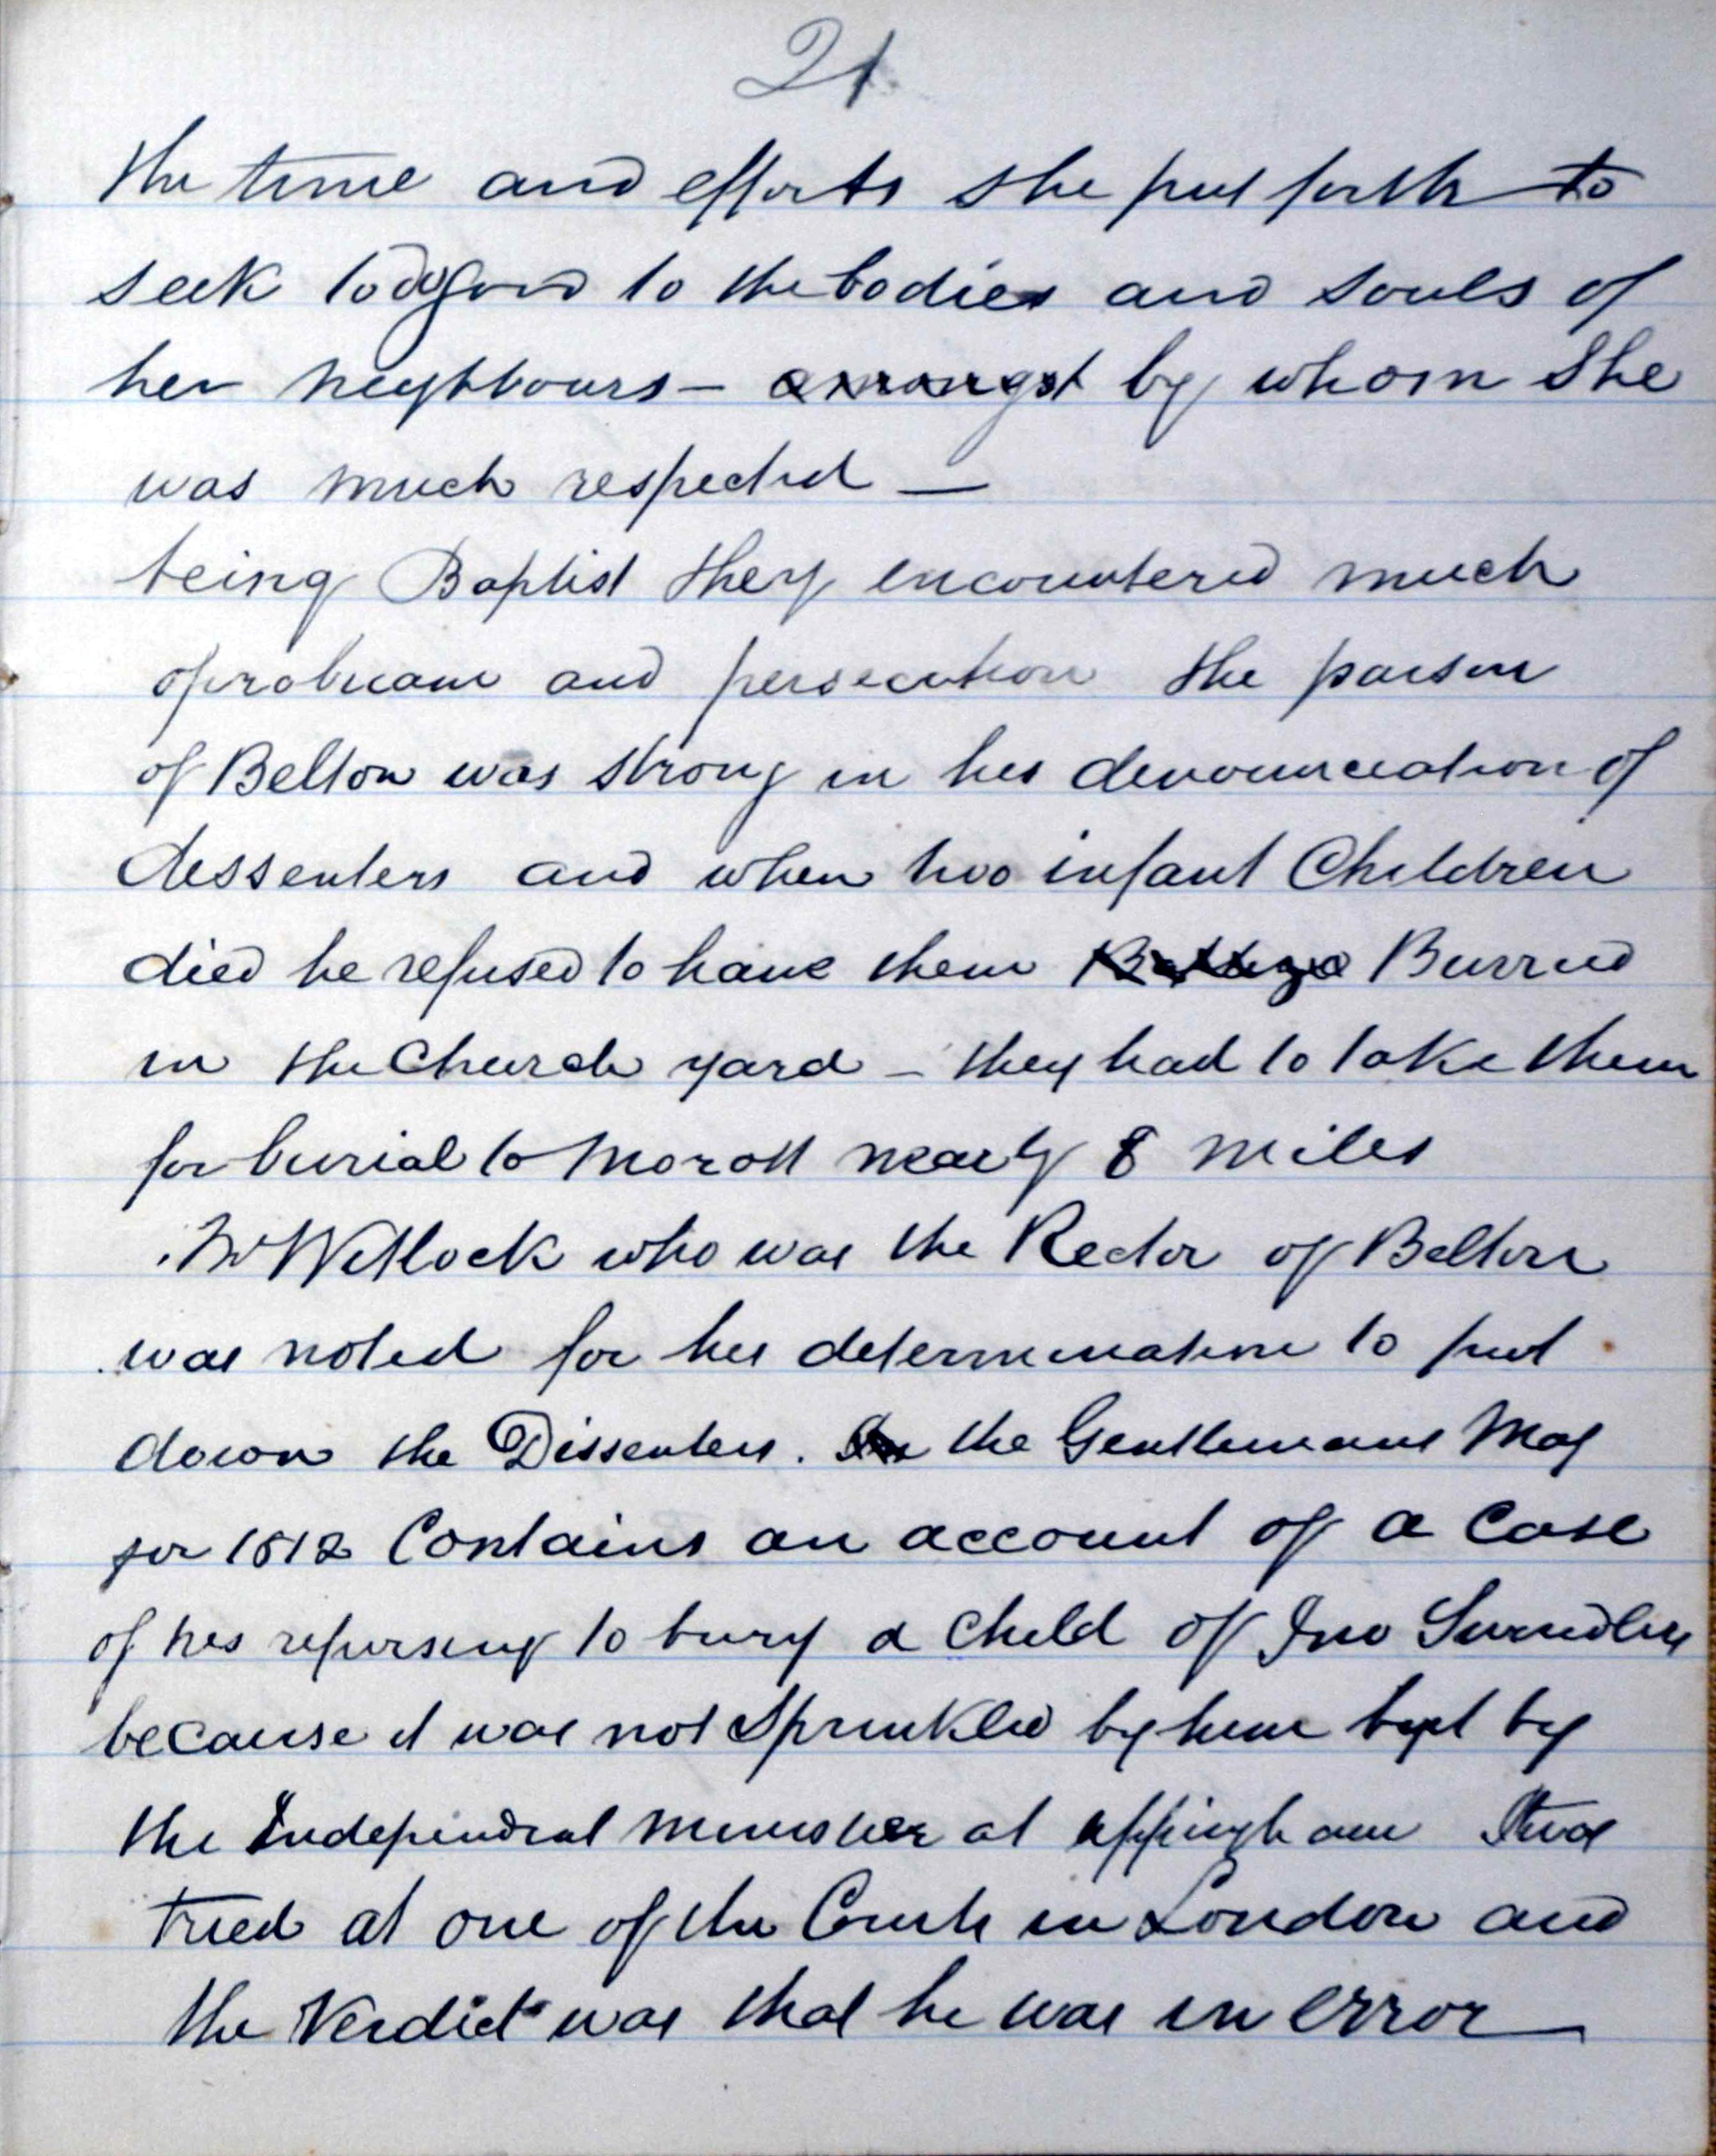 21
the time and efforts she put forth to
seek to do good to the bodies and souls of
her neighbours - amongst by whom she
was much respected —
being Baptist they encountered much
oprobruam and persecution the parson
of Belton was strong in his denounciation of
dessenters and when two infant Children
died he refused to have them Burried
in the Church yard - they had to take them
for burial to Morcott nearly 8 miles
Mr Wetlock who was the Rector of Belton
was noted for his determination to put
down the Dissenters. the Gentlemans Mag
for 1812 Contains an account of a Case
of his refursing to bury a Child of Jno Swindley
because it was not Sprinkled by him but by
the Independent Minister at uppingham It was
tried at one of the Courts in London and
the Verdict was that he was in error —